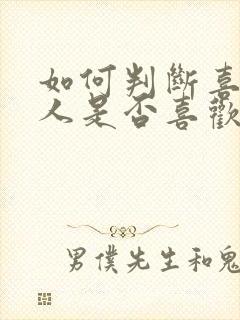 如何判斷喜
人是否喜歡
男僕先生和鬼